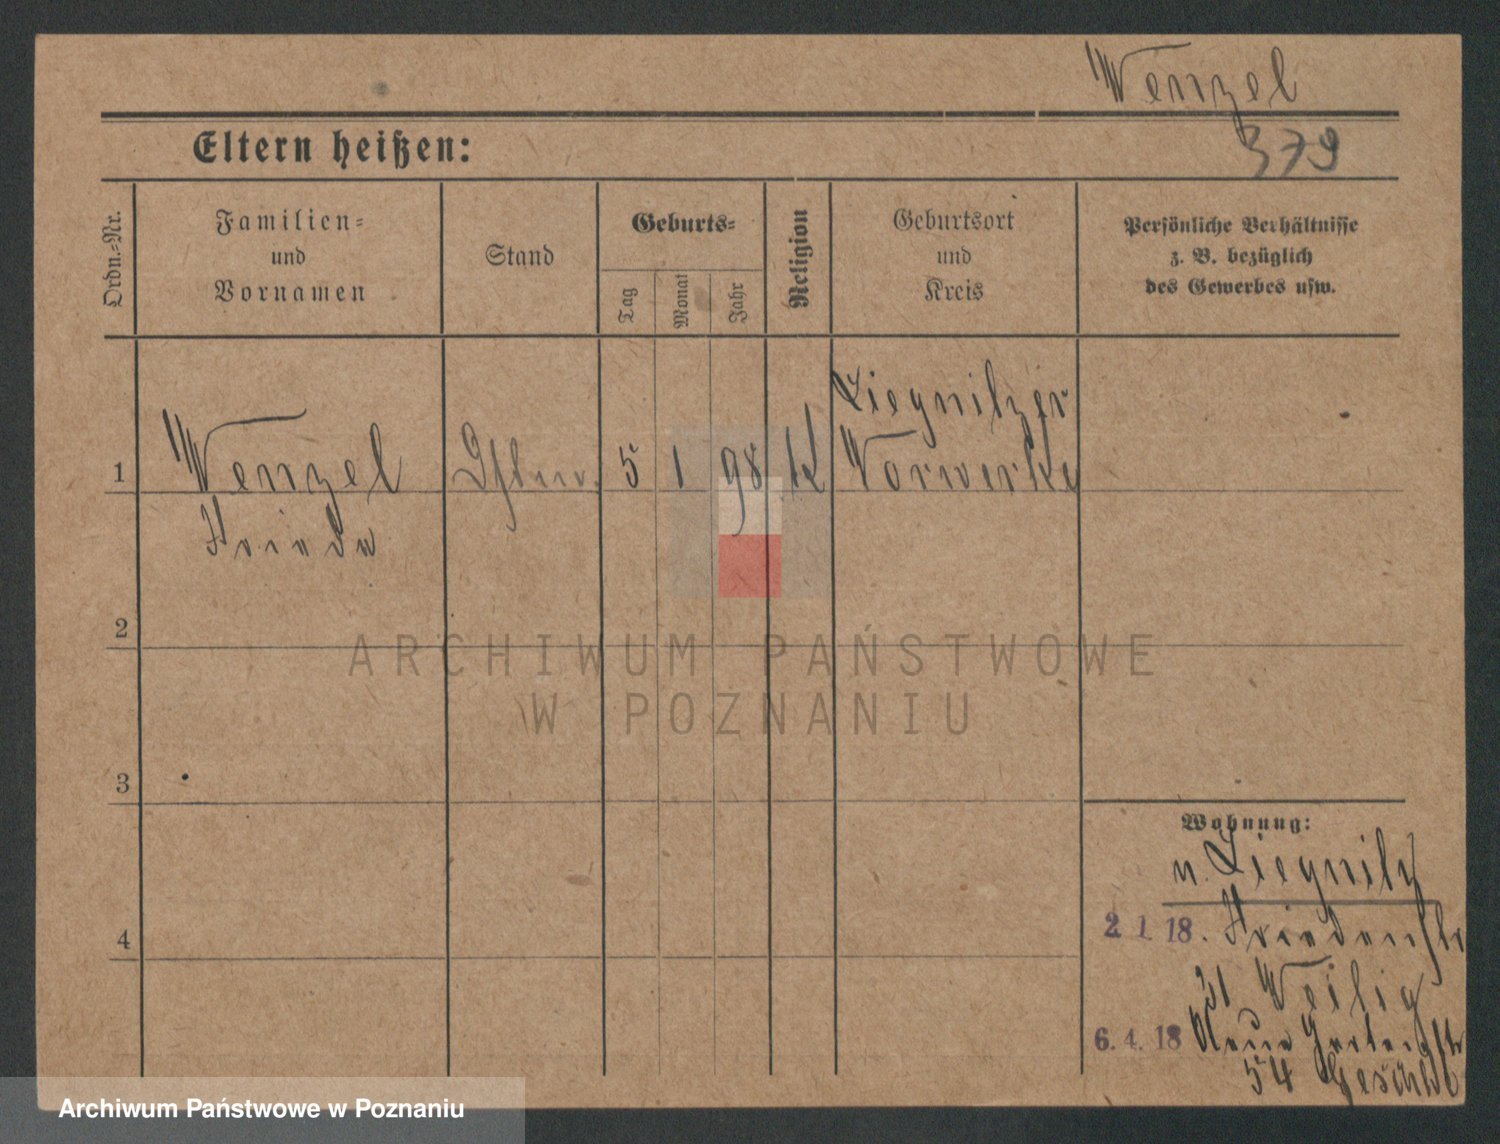 Wenzel
379
Eltern heißen:
Ordn.=Nr.
Familien=
und
Vornamen
Stand
Geburts=
Tag
Monat
Jahr
Religion
Geburtsort
und
Kreis
Persönliche Verhältnisse
z. B. bezüglich
des Gewerbes usw.
1
Wenzel
Frieda
5
1
98
K
Liegnitzer
Vorwerke
2
3
4
ARCHIWUM PAŃSTWOWE
W POZNANIU
Wohnung:
n. Liegnitz
2. 1. 18. Friedenstr
31 Weilig
6. 4. 18 Neue Gartenstr
54
Archiwum Państwowe w Poznaniu